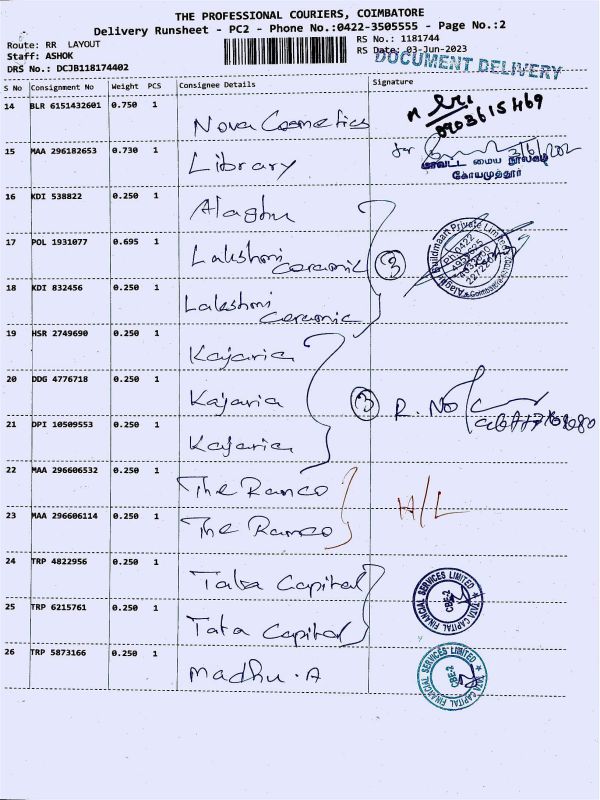 THE PROFESSIONAL COURIERS, COIMBATORE
Delivery Runsheet - PC2 - Phone No.:0422-3505555 - Page No.:2
Route: RR LAYOUT
RS No.: 1181744
Staff: ASHOK
RS Date: 03-Jun-2023
DRS No.: DCJB118174402
DOCUMENT DELIVERY
S No Consignment No Weight PCS Consignee Details Signature
14 BLR 6151432601 0.750 1 Nova Cosmetics
15 MAA 296182653 0.730 1 Library for
மாவட்ட மைய நூலகம்
கோயமுத்தூர்
16 KDI 538822 0.250 1 Alaghu
17 POL 1931077 0.695 1 Lakshmi Ceramic 3
18 KDI 832456 0.250 1 Lakshmi Ceramic
19 HSR 2749690 0.250 1 Kajaria
20 DDG 4776718 0.250 1 Kajaria 3 R. No
21 DPI 10509553 0.250 1 Kajaria
22 MAA 296606532 0.250 1 The Ramco
23 MAA 296606114 0.250 1 The Ramco H/L
24 TRP 4822956 0.250 1 Tata Capital
TATA CAPITAL FINANCIAL SERVICES LIMITED
CBE-2
25 TRP 6215761 0.250 1 Tata Capital
26 TRP 5873166 0.250 1 Madhu.A
TATA CAPITAL FINANCIAL SERVICES LIMITED
CBE-2